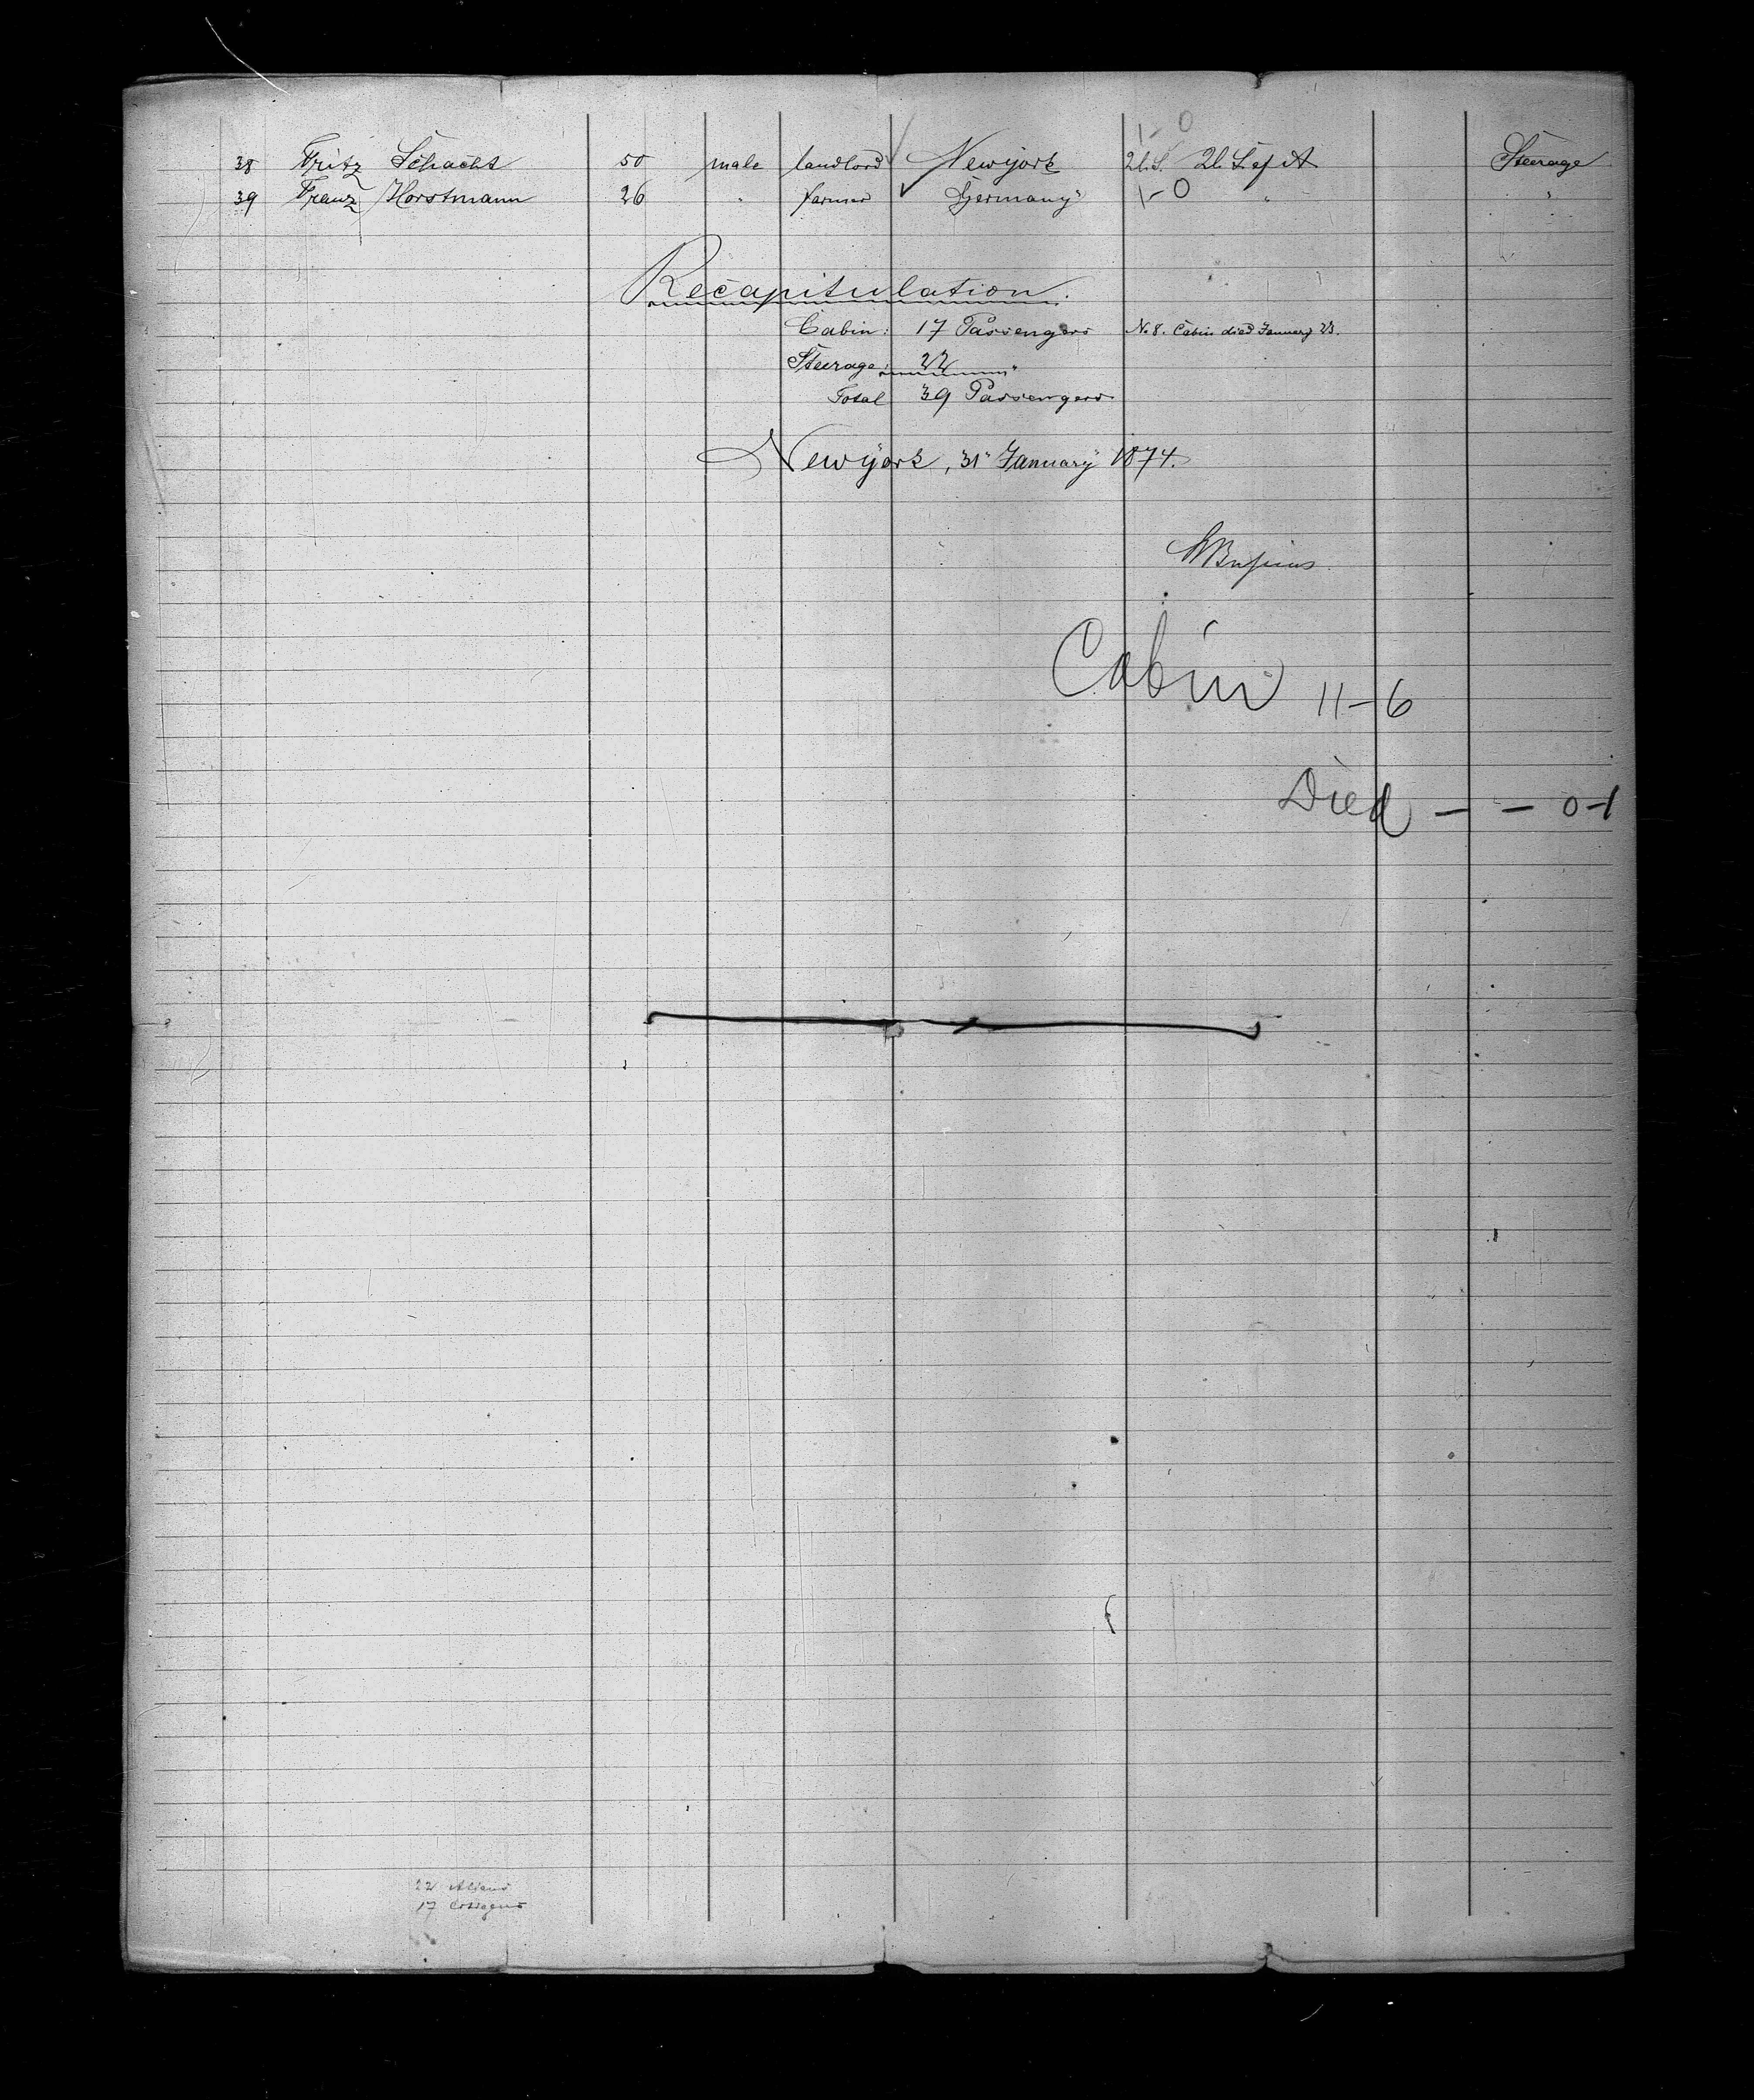 1-0
38 Fritz Schacht 50 male landlord Newyork U.S. U. S. of A Steerage
39 Franz Horstmann 26 " farmer Germany 1-0 " "
Recapitulation.
Cabin: 17 Passengers No 8. Cabin died January 23.
Steerage: 22 "
Total 39 Passengers
Newyork, 31 January 1874.
Cabin 11-6
Died - - 0-1
22 Aliens
17